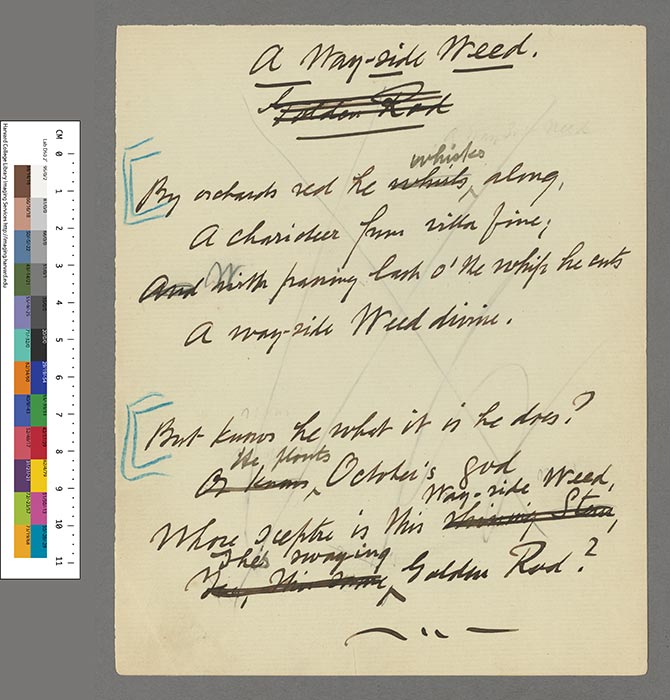 A Way-side Weed.
Golden Rod
whisks
By orchards red he whisks, along,
A charioteer from villa fine;
And With passing lash o' the whip he cuts
A way-side Weed divine.
But knows he what it is he does?
He flouts
Or knows, October's god
Way-side Weed,
Whose sceptre is this Shining Stem,
This swaying
Golden Rod?
CM 0 1 2 3 4 5 6 7 8 9 10 11
Harvard College Library Imaging Services http://imaging.harvard.edu